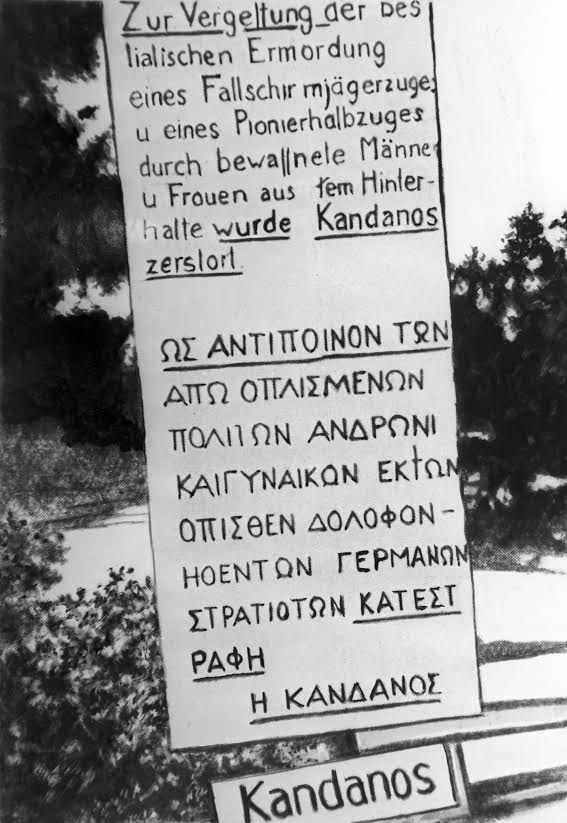 Zur Vergeltung der bes
tialischen Ermordung
eines Fallschirmjägerzuges
u eines Pionierhalbzuges
durch bewaffnele Männer
u Frouen aus fem Hinter-
halte wurde Kandanos
zerslort.
ΩΣ ΑΝΤΙΠΟΙΝΟΝ ΤΩΝ
ΑΠΩ ΟΠΛΙΣΜΕΝΩΝ
ΠΟΛΙΤΩΝ ΑΝΔΡΩΝΙ
ΚΑΙΓΥΝΑΙΚΩΝ ΕΚΤΩΝ
ΟΠΙΣΘΕΝ ΔΟΛΟΦΟΝ-
ΗΟΕΝΤΩΝ ΓΕΡΜΑΝΩΝ
ΣΤΡΑΤΙΟΤΩΝ ΚΑΤΕΣΤ
ΡΑΦΗ
Η ΚΑΝΔΑΝΟΣ
Kandanos